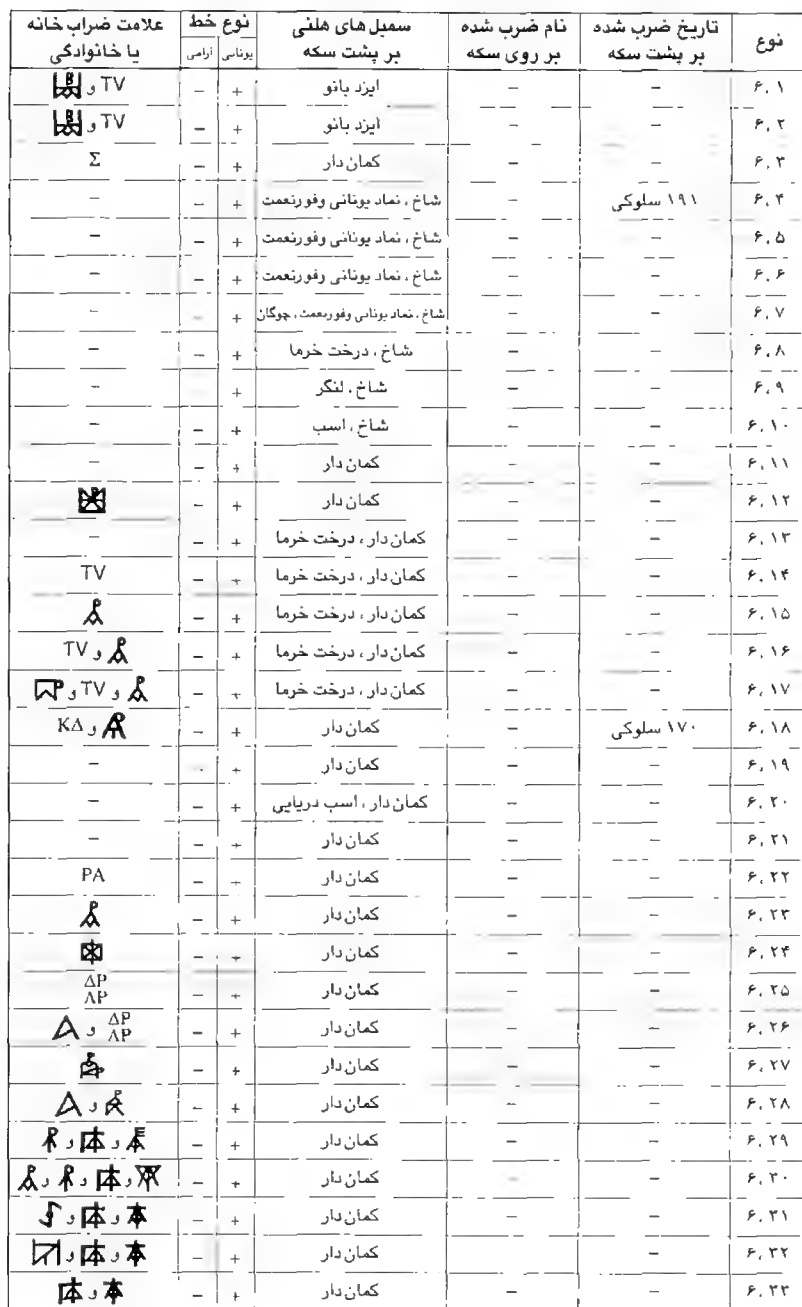 نوع | تاریخ ضرب شده بر پشت سکه | نام ضرب شده بر روی سکه | سمبل های هلنی بر پشت سکه | نوع خط یونانی | نوع خط آرامی | علامت ضراب خانه یا خانوادگی
۶،۱ | – | – | ایزد بانو | + | – | TV و
۶،۲ | – | – | ایزد بانو | + | – | TV و
۶،۳ | – | – | کمان دار | + | – | Σ
۶،۴ | ۱۹۱ سلوکی | – | شاخ، نماد یونانی وفورنعمت | + | – | –
۶،۵ | – | – | شاخ، نماد یونانی وفورنعمت | + | – | –
۶،۶ | – | – | شاخ، نماد یونانی وفورنعمت | + | – | –
۶،۷ | – | – | شاخ، نماد یونانی وفورنعمت، چوگان | + | – | –
۶،۸ | – | – | شاخ، درخت خرما | + | – | –
۶،۹ | – | – | شاخ، لنگر | + | – | –
۶،۱۰ | – | – | شاخ، اسب | + | – | –
۶،۱۱ | – | – | کمان دار | + | – | –
۶،۱۲ | – | – | کمان دار | + | – |
۶،۱۳ | – | – | کمان دار، درخت خرما | + | – | –
۶،۱۴ | – | – | کمان دار، درخت خرما | + | – | TV
۶،۱۵ | – | – | کمان دار، درخت خرما | + | – |
۶،۱۶ | – | – | کمان دار، درخت خرما | + | – | و TV
۶،۱۷ | – | – | کمان دار، درخت خرما | + | – | و TV و
۶،۱۸ | ۱۷۰ سلوکی | – | کمان دار | + | – | و ΚΔ
۶،۱۹ | – | – | کمان دار | + | – | –
۶،۲۰ | – | – | کمان دار، اسب دریایی | + | – | –
۶،۲۱ | – | – | کمان دار | + | – | –
۶،۲۲ | – | – | کمان دار | + | – | PA
۶،۲۳ | – | – | کمان دار | + | – |
۶،۲۴ | – | – | کمان دار | + | – |
۶،۲۵ | – | – | کمان دار | + | – | ΔΡ ΛΡ
۶،۲۶ | – | – | کمان دار | + | – | ΔΡ ΛΡ و
۶،۲۷ | – | – | کمان دار | + | – |
۶،۲۸ | – | – | کمان دار | + | – | و
۶،۲۹ | – | – | کمان دار | + | – | و و
۶،۳۰ | – | – | کمان دار | + | – | و و و
۶،۳۱ | – | – | کمان دار | + | – | و و
۶،۳۲ | – | – | کمان دار | + | – | و و
۶،۳۳ | – | – | کمان دار | + | – | و